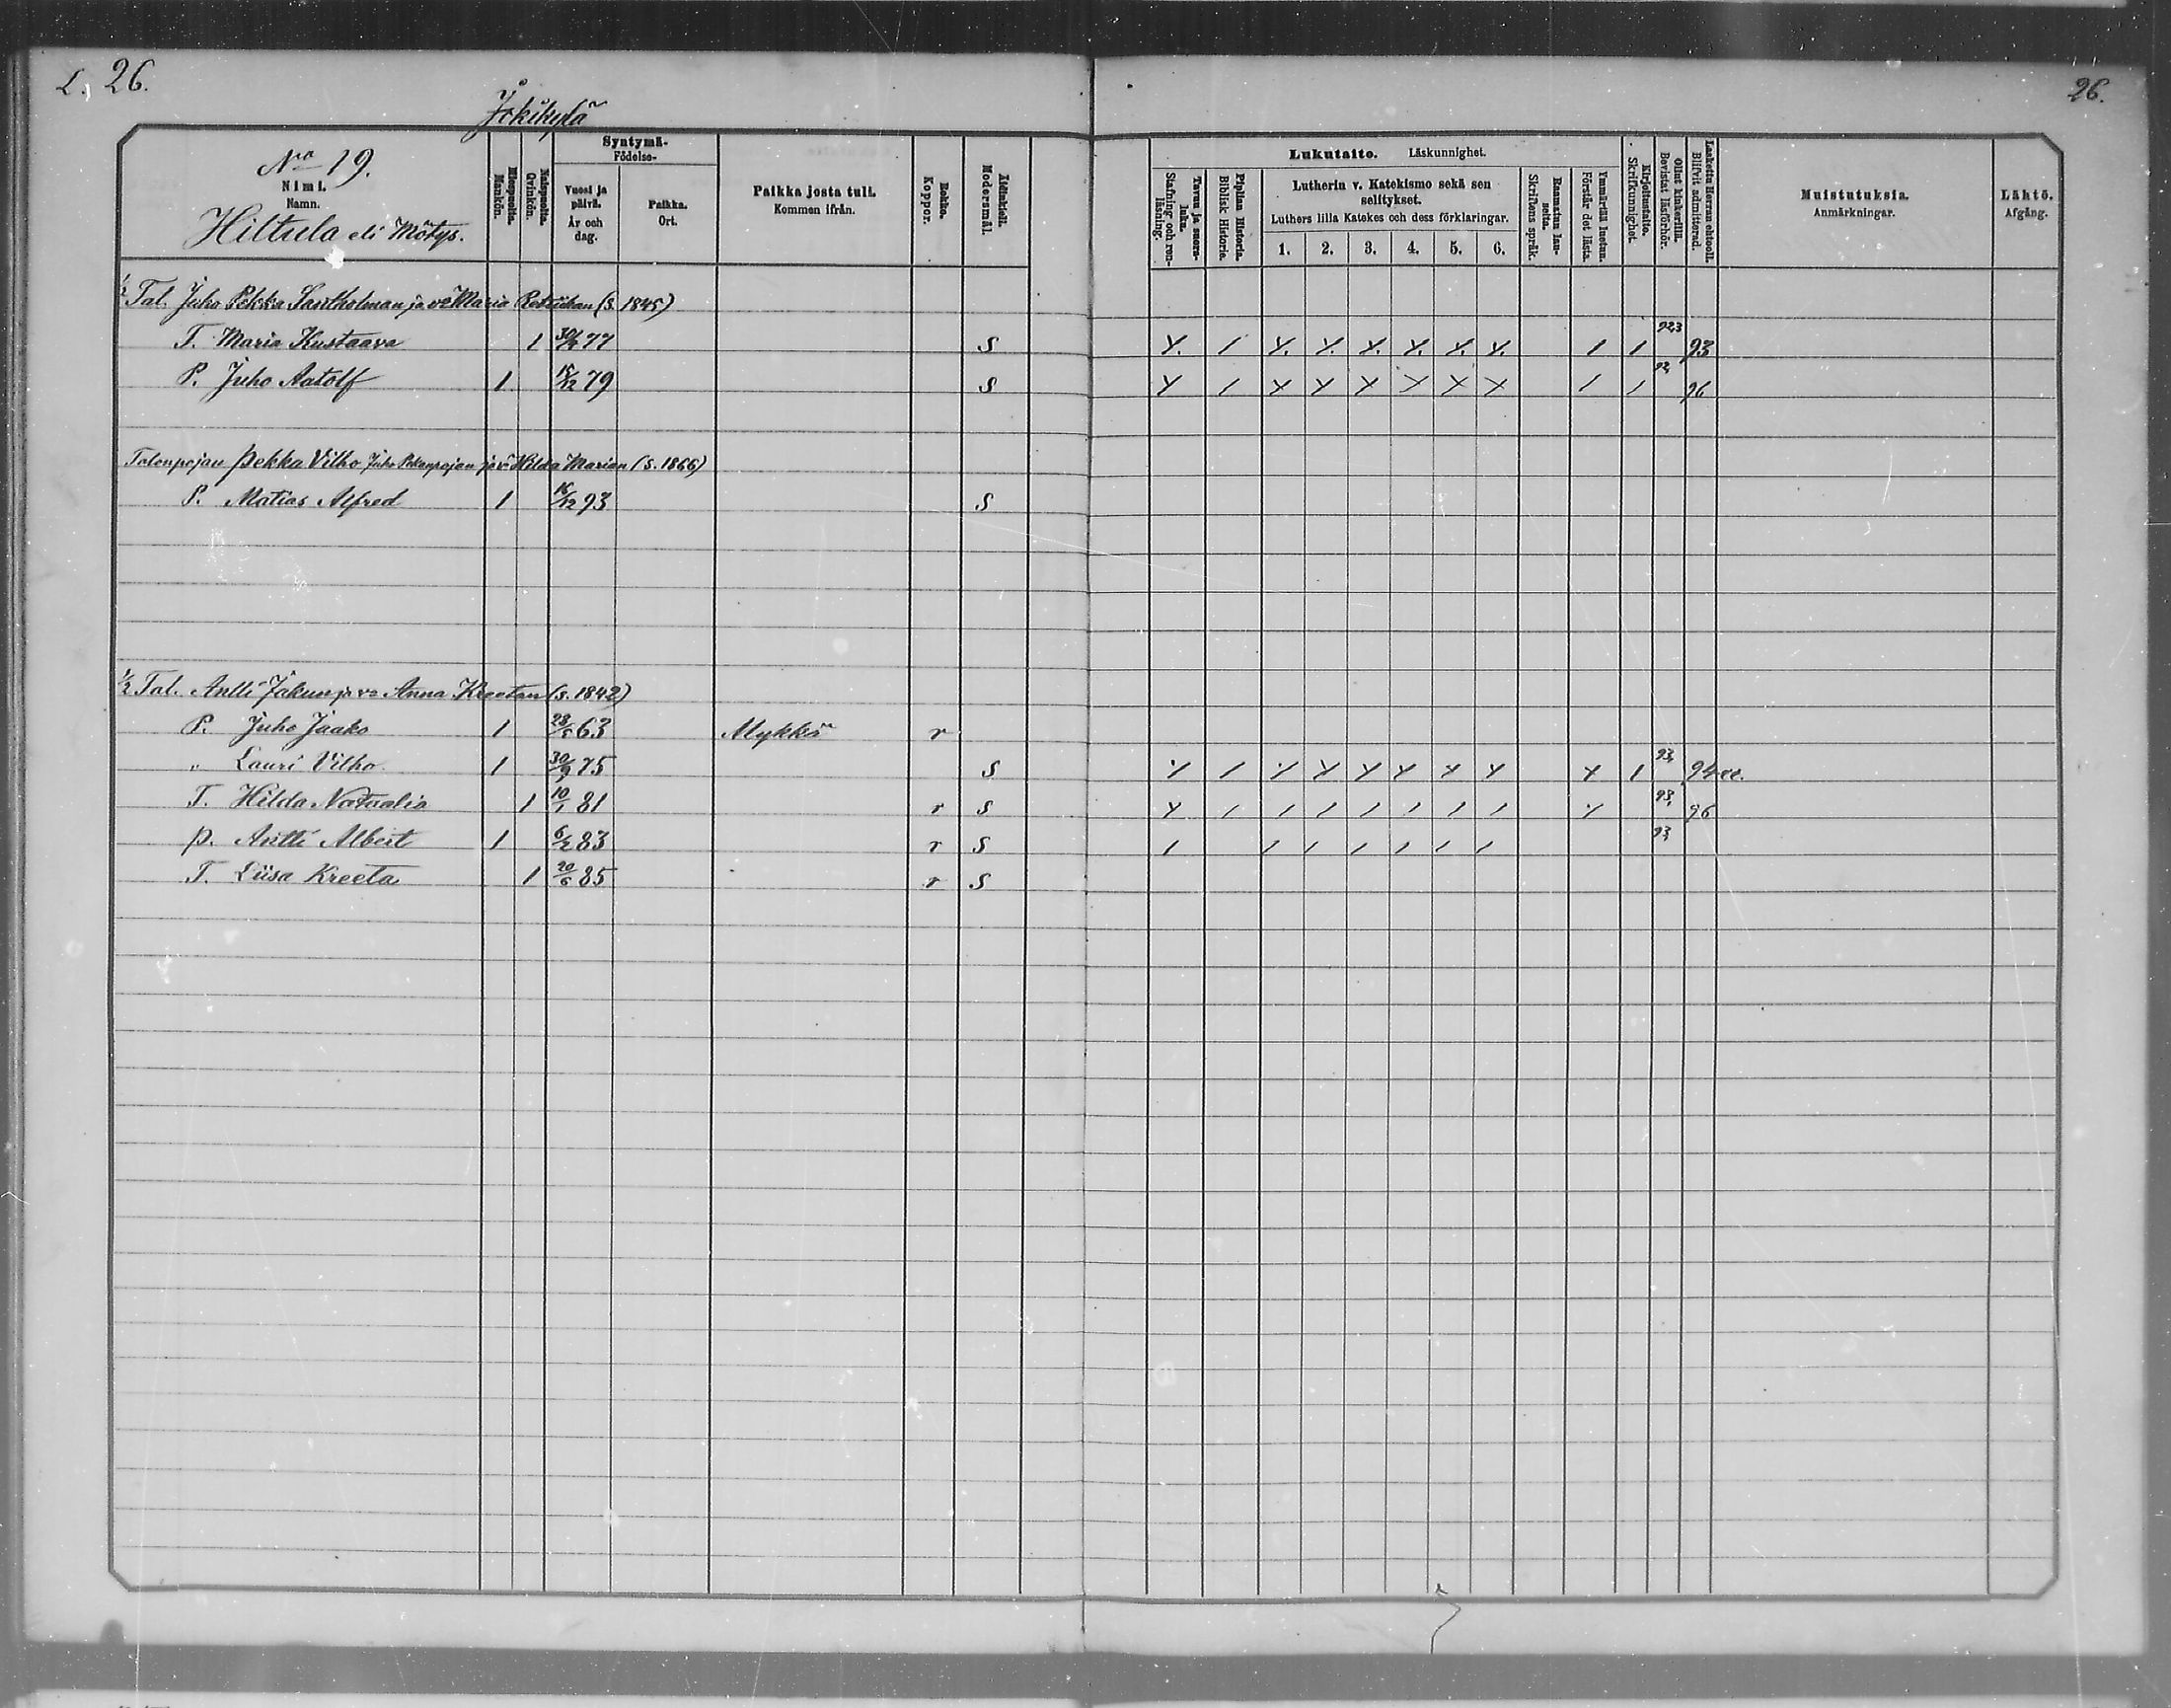 L. 26.
26.
Jokikylä
No 19.
Nimi.
Namn.
Hiltula eli Mötys.
Miespuolia. Mankön.
Naispuolia. Qvinkön.
Syntymä-
Födelse-
Vuosi ja päivä.
År och dag.
Paikka.
Ort.
Paikka josta tuli.
Kommen ifrån.
Rokko.
Koppor.
Äidinkieli.
Modersmål.
Lukutaito. Läskunnighet.
Tavuu ja suora luku.
Stafning och ren-läsning.
Piplian Historia.
Biblisk Historia.
Lutherin v. Katekismo sekä sen selitykset.
Luthers lilla Katekes och dess förklaringar.
1. 2. 3. 4. 5. 6.
Raamatun lauseita.
Skriftens språk.
Ymmärtää luetun.
Förstår det lästa.
Kirjoitustaito.
Skrifkunnighet.
Ollut kinkerillä.
Bevistat läsförhör.
Laskettu Herran ehtooll.
Blifvit admitterad.
Muistutuksia.
Anmärkningar.
Lähtö.
Afgång.
1/2 Tal. Juho Pekka Santholman ja vo Maria (s. 1845)
T. Maria Kustaava 1 77 S Y. / Y. Y. Y. Y. Y. Y. 1 1 923 93
P. Juho Aatolf 1 15/12 79 S Y / Y Y Y Y Y Y / / 96
Talonpojan Pekka Vilho Juho Pekanpojan ja vo Hilda Marian (s. 1866)
P. Matias Alfred 1 16/12 93 S
1/2 Tal. Antti Jakun ja vo Anna Kreetan (s. 1842)
P. Juho Jaako 1 63 Mykkä r
" Lauri Vilho 1 30/9 75 S Y / Y Y Y Y Y Y Y 1 93 94
T. Hilda Nataalia 1 10/1 81 r S Y / / / / / / / Y 93, 96
P. Antti Albert 1 6/2 83 r S / / / / / / / 93
T. Liisa Kreeta 1 20/6 85 r S